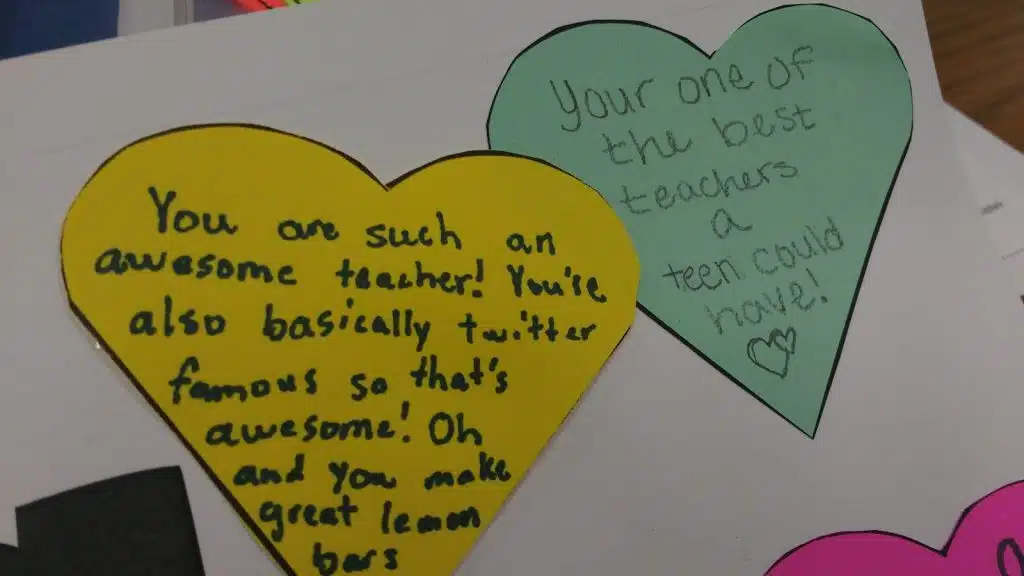 You are such an
awesome teacher! You're
also basically twitter
famous so that's
awesome! Oh
and you make
great lemon
bars
Your one of
the best
teachers
a
teen could
have!